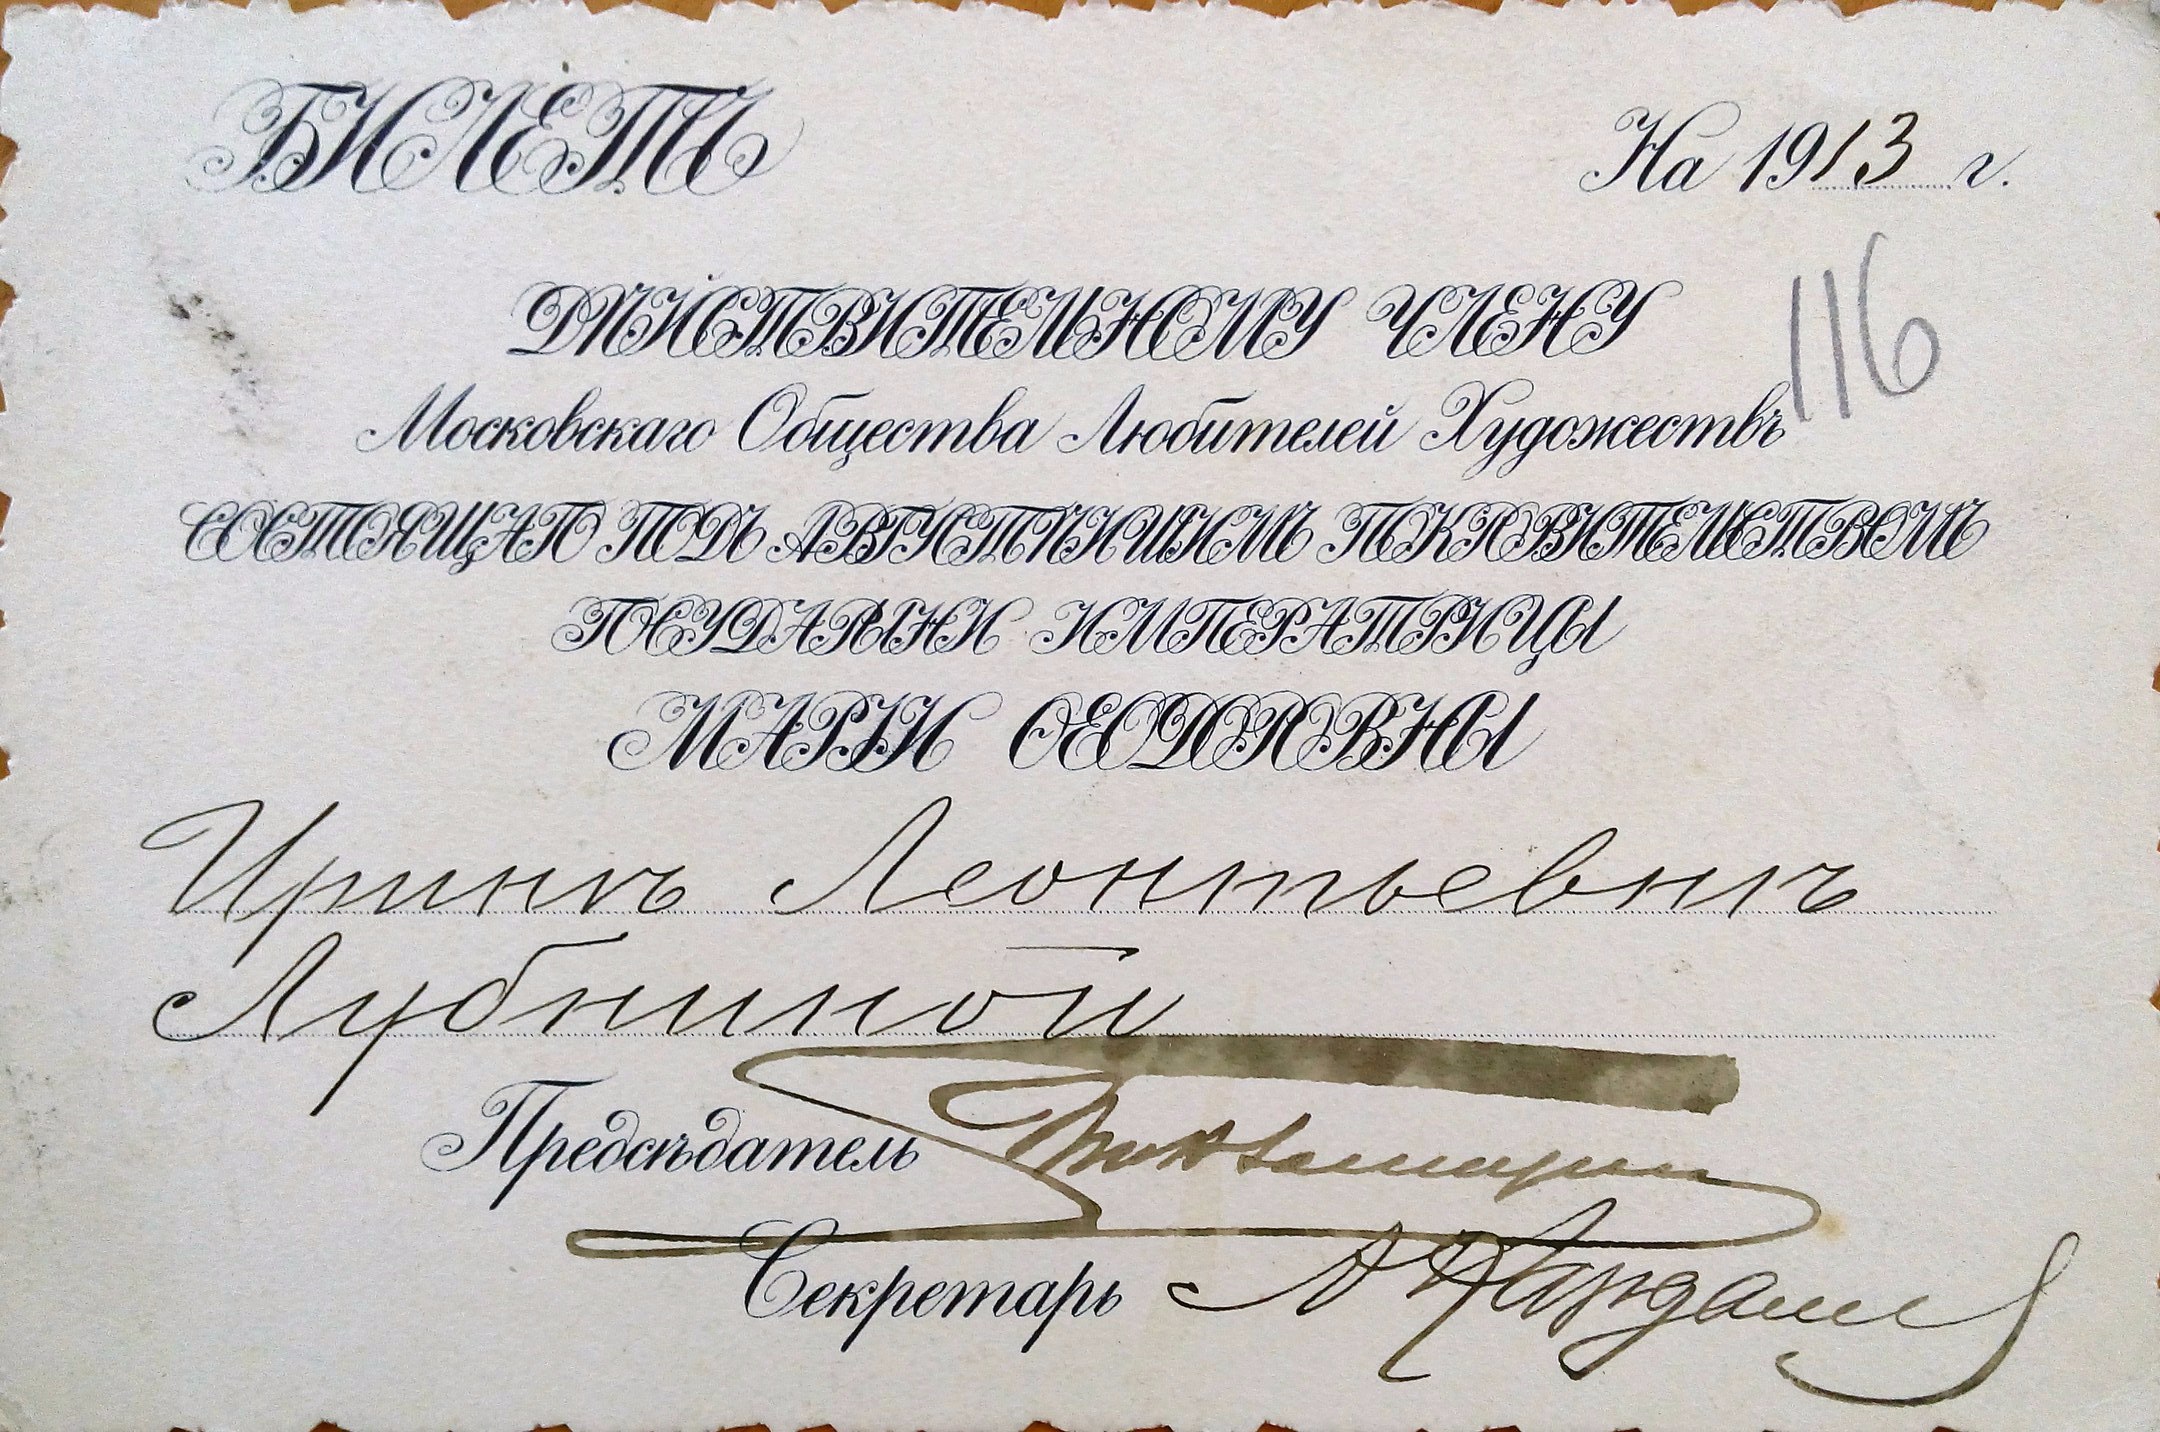 БИЛЕТЪ
На 1913 г.
116
ДѢЙСТВИТЕЛЬНОМУ ЧЛЕНУ
Московскаго Общества Любителей Художествъ
СОСТОЯЩАГО ПОДЪ АВГУСТѢЙШИМЪ ПОКРОВИТЕЛЬСТВОМЪ
ГОСУДАРЫНИ ИМПЕРАТРИЦЫ
МАРІИ ѲЕОДОРОВНЫ
Иринѣ Леонтьевнѣ
Лубниной
Предсѣдатель
Секретарь